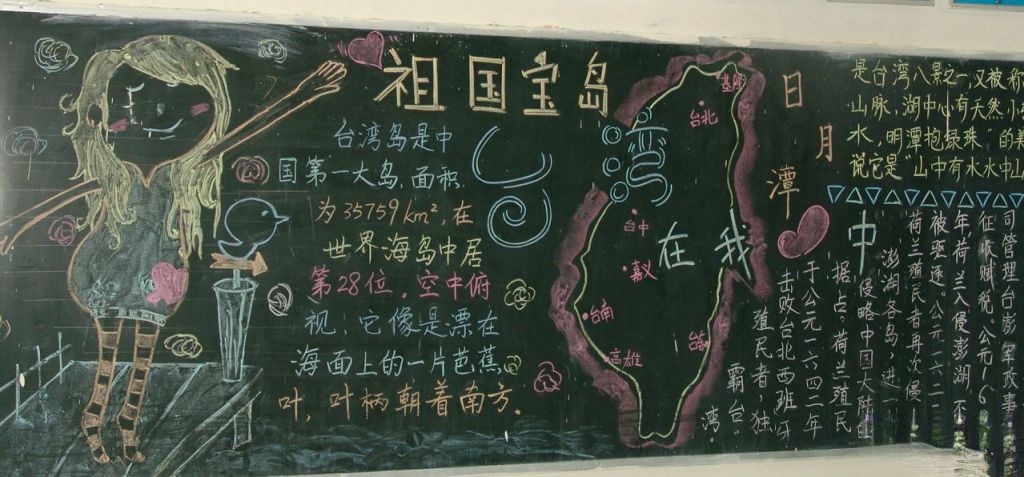 祖国宝岛
台湾岛是中
国第一大岛,面积
为35759km²,在
世界海岛中居
第28位。空中俯
视,它像是漂在
海面上的一片芭蕉
叶,叶柄朝着南方。
基隆
台北
台中
嘉义
台南
高雄
湾
在我
中
日月潭
是台湾八景之一,又被称
山脉,湖中心有天然小
水,明潭抱绿珠"的美
说它是"山中有水水中山
司管理台澎军政事
征收赋税。公元16
年荷兰入侵澎湖,不
被驱逐。公元一六二二
荷兰殖民者再次侵
澎湖各岛,进一
侵略中国大陆
据点。荷兰殖民
于公元一六四二年
击败台北西班牙
殖民者,独
霸台
湾。